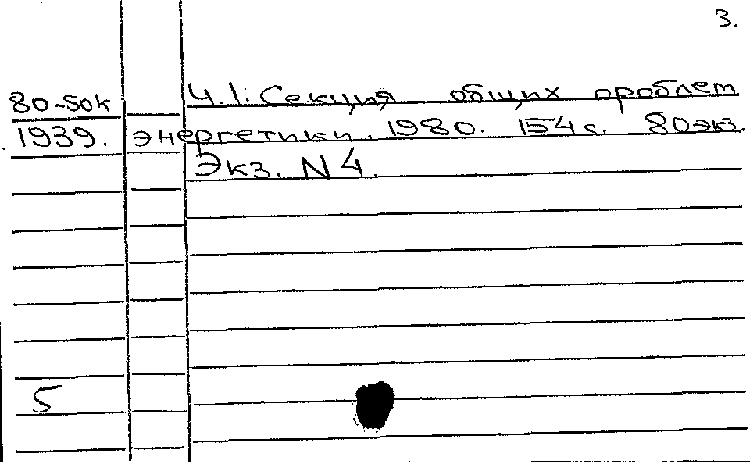 3.
80-50к Ч.1: Секция общих проблем
1939. энергетики. 1980. 154 с. 80 экз.
Экз. N 4.
5